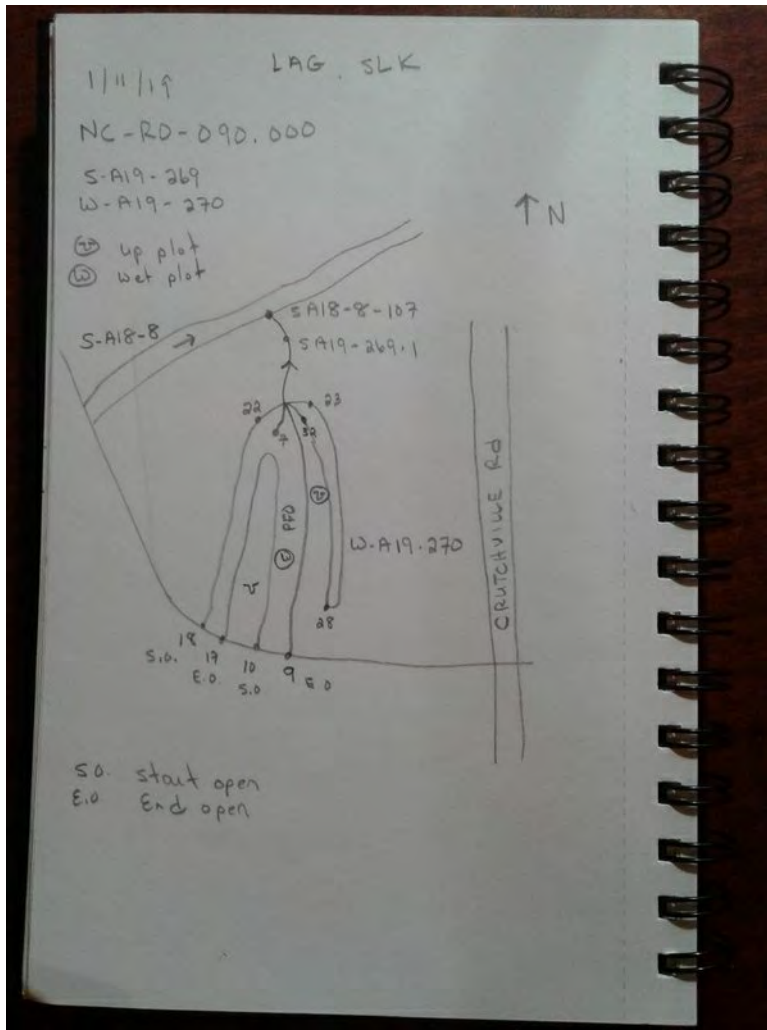 LAG. SLK
1/11/19
NC-RD-090.000
S-A19-269
W-A19-270
↑ N
up plot
W wet plot
S-A18-8 →
SA18-8-107
SA19-269.1
22
23
7
32
PFO
W
W-A19-270
CRUTCHVILLE Rd
28
18
S.O.
17
E.O.
10
S.O
9
E.O
S.O. Start open
E.O End open